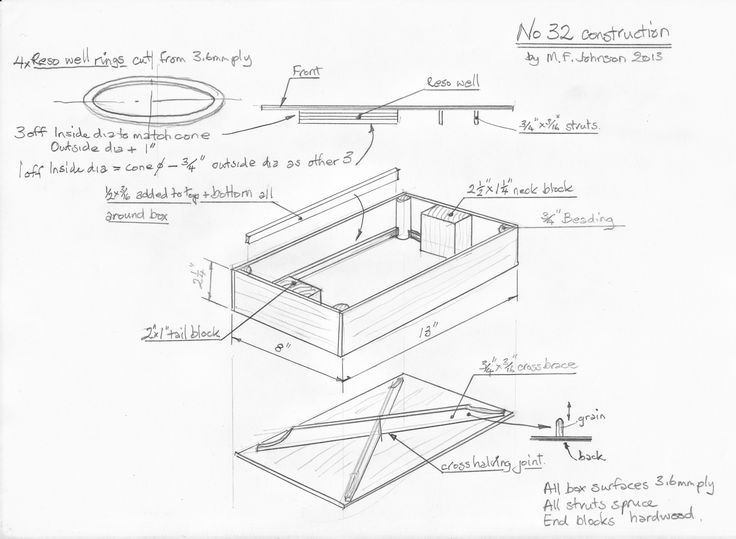 No 32 construction
by M.F. Johnson 2013
4x Reso well rings cut from 3.6mm ply
Front
Reso well
3/4" x 3/16" struts.
3 off Inside dia to match cone
Outside dia + 1"
1 off Inside dia = cone ø - 3/4" outside dia as other 3
1/2 x 3/16 added to top + bottom all
around box
2 1/2" x 1 1/4" neck block
3/4" Beading
2 1/4"
2"x1" tail block
8"
13"
3/4" x 3/16" cross brace
grain
back
cross halving joint.
All box surfaces 3.6mm ply
All struts spruce
End blocks hardwood.